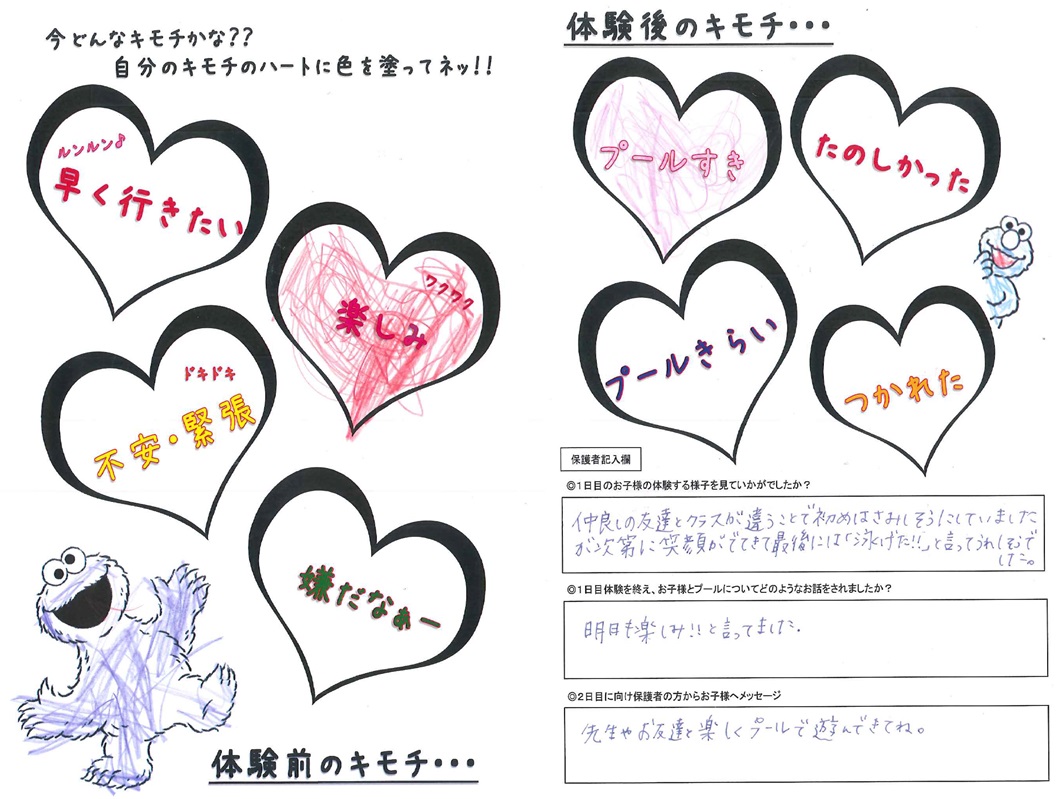 今どんなキモチかな??
自分のキモチのハートに色を塗ってネッ!!
ルンルン♪
早く行きたい
ワクワク
楽しみ
ドキドキ
不安・緊張
嫌だなぁー
体験前のキモチ・・・
体験後のキモチ・・・
プールすき
たのしかった
プールきらい
つかれた
保護者記入欄
◎1日目のお子様の体験する様子を見ていかがでしたか？
仲良しの友達とクラスが違うことで初めはさみしそうにしていました
が次第に笑顔がでてきて最後には「泳げた!!」と言ってうれしそうで
した。
◎1日目体験を終え、お子様とプールについてどのようなお話をされましたか？
明日も楽しみ!!と言ってました。
◎2日目に向け保護者の方からお子様へメッセージ
先生やお友達と楽しくプールで遊んできてね。